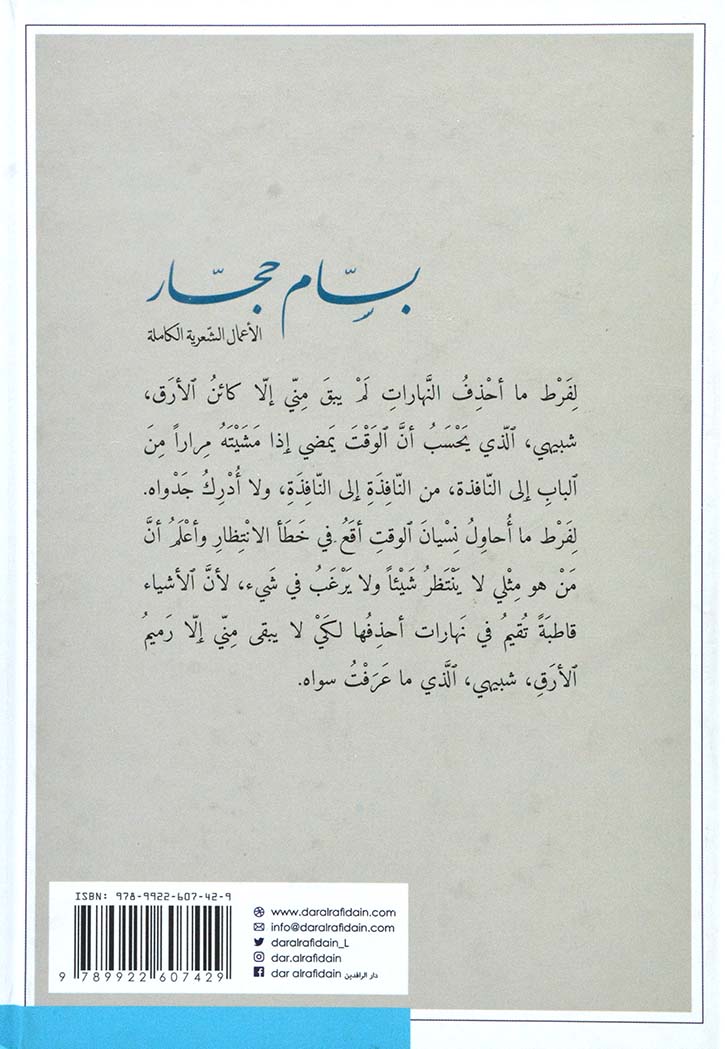 بسّام حجّار
الأعمال الشّعرية الكاملة
لِفَرْط ما أحْذِفُ النَّهاراتِ لَمْ يبقَ مِنّي إلّا كائنُ ٱلأرَق،
شبيهي، ٱلّذي يَحْسَبُ أنَّ ٱلوَقْتَ يَمضي إذا مَشَيْتَهُ مِراراً مِنَ
ٱلبابِ إلى النّافذة، من النّافِذَةِ إلى النّافِذَةِ، ولا أُدْرِكُ جَدْواه.
لِفَرْط ما أُحاوِلُ نِسْيانَ ٱلوقتِ أقَعُ في خَطَأ الانْتِظار وأعْلَمُ أنَّ
مَنْ هو مِثْلي لا يَنْتَظرُ شَيْئاً ولا يَرْغَبُ في شَيء، لأنَّ ٱلأشياء
قاطبَةً تُقيمُ في نَهارات أحذِفُها لكَيْ لا يبقى مِنّي إلّا رَميمُ
ٱلأرَقِ، شبيهي، ٱلَّذي ما عَرَفْتُ سواه.
ISBN: 978-9922-607-42-9
9 789922 607429
www.daralrafidain.com
info@daralrafidain.com
daralrafidain_L
dar.alrafidain
dar alrafidain دار الرافدين